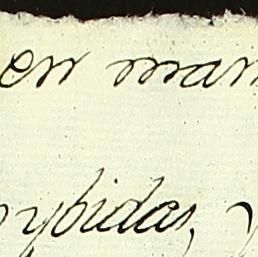 en man
ybidas,